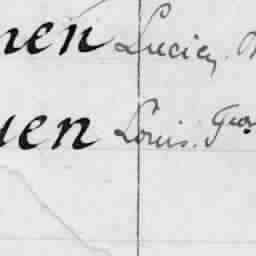 nen Lucien
uen Louis. Geor